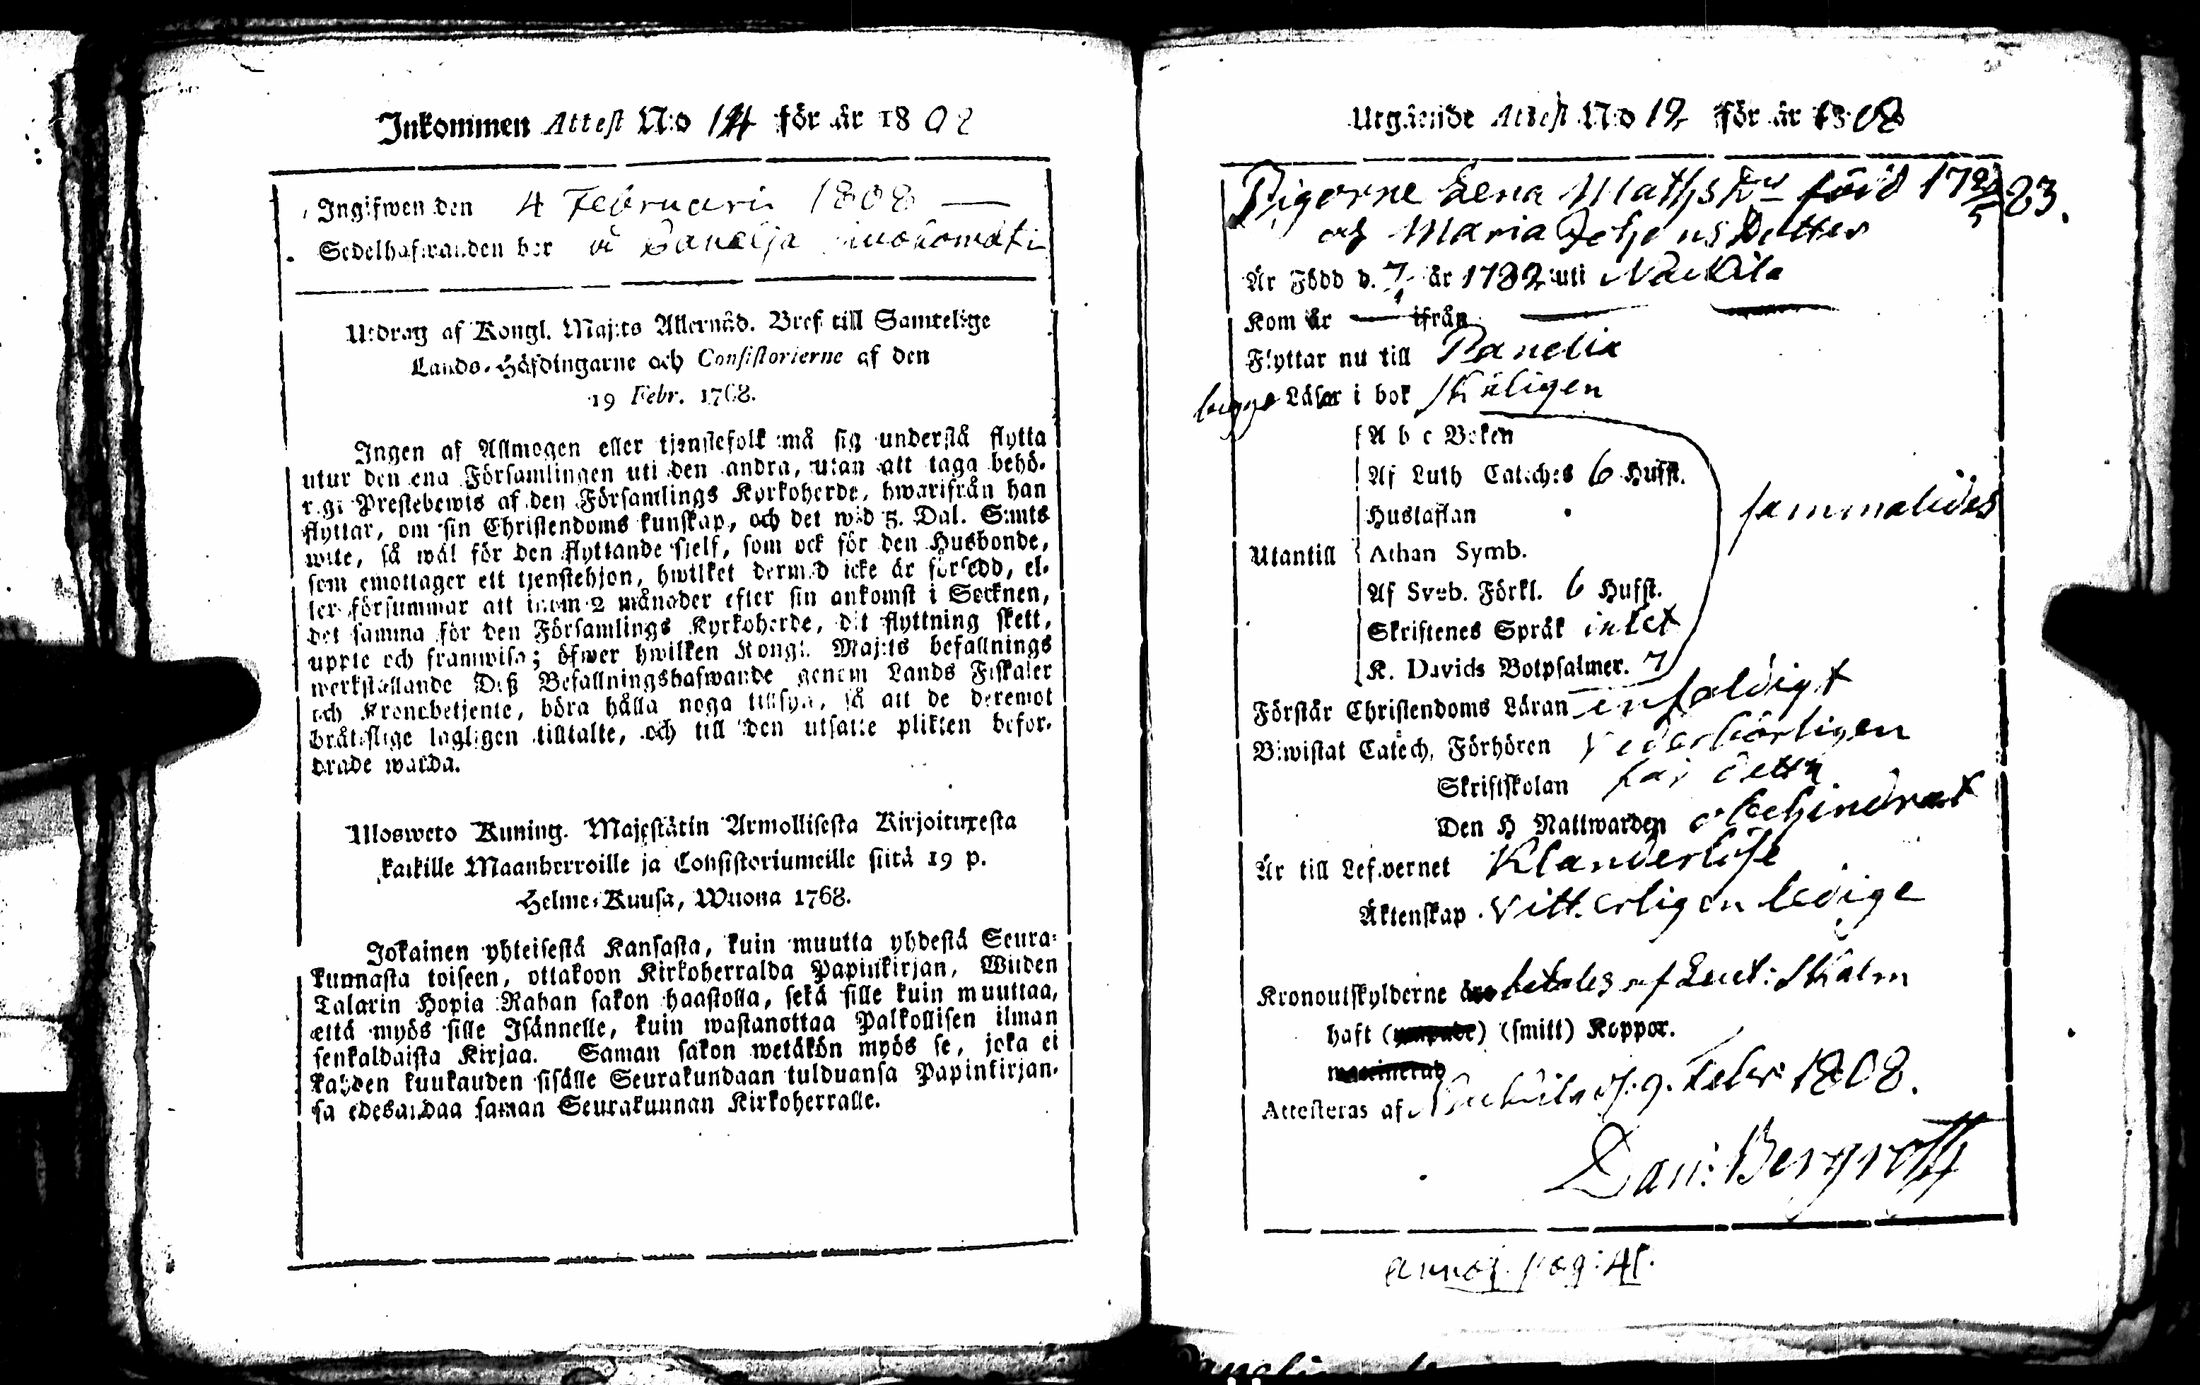 Inkommen Attest N:o 14 för år 1808
Ingifwen den 4 Februarii 1808
Sedelhafwanden bor å Panelja
Utdrag af Kongl. Maj:ts Allernåd. Bref till Samtelige
Lands-Höfdingarne och Consistorierne af den
19 Febr. 1768.
Ingen af Allmogen eller tjenstefolk må sig understå flytta
utur den ena Församlingen uti den andra, utan att taga behö-
rigt Prestebewis af den Församlings Kyrkoherde, hwarifrån han
flyttar, om sin Christendoms kunskap, och det wid 5. Dal. S:mts
wite, så wäl för den flyttande sjelf, som ock för den Husbonde,
som emottager ett tjenstehjon, hwilket dermed icke är försedd, el-
ler försummar att inom 2 månader efter sin ankomst i Socknen,
det samma för den Församlings Kyrkoherde, dit flyttning skett,
uppte och framwisa; öfwer hwilken Kongl. Maj:ts befallnings
werkställande Deß Befallningshafwande genom Lands Fiskaler
och Kronobetjente, böra hålla noga tillsyn, så att de deremot
bråtslige lagligen tilltalte, och till den utsatte plikten befor-
drade warda.
Ulosweto Kuning. Majestätin Armollisesta Kirjoituxesta
kaikille Maanherroille ja Consistoriumeille siitä 19 p.
Helme-Kuusa, Wuona 1768.
Jokainen yhteisestä Kansasta, kuin muutta yhdestä Seura-
kunnasta toiseen, ottakoon Kirkoherralda Papinkirjan, Wiiden
Talarin Hopia Rahan sakon haastolla, sekä sille kuin muuttaa,
että myös sille Isännelle, kuin wastanottaa Palkollisen ilman
senkaldaista Kirjaa. Saman sakon wetäkön myös se, joka ei
kahden kuukauden sisälle Seurakundaan tulduansa Papinkirjan-
sa edesandaa saman Seurakunnan Kirkoherralle.
Utgående Attest N:o 12 för år 1808
23.
Pigorne Lena Mathsdr född 17
och Maria Johans Dotter
Är Född d. 7/1 år 1782 uti Nackila
Kom år — ifrån —
Flyttar nu till Panelia
bägge Läser i bok skäligen
A b c Boken
Af Luth Cateches 6 Hufst.
Hustaflan
sammaledes
Utantill Athan Symb.
Af Sveb. Förkl. 6 Hufst.
Skriftenes Språk intet
K. Davids Botpsalmer. 7
Förstår Christendoms Läran enfaldigt
Biwistat Catech. Förhören vederbörligen
Skriftskolan för detta
Den H Nattwarden obehindrat
Är till Lefwernet Klanderlöse
Äktenskap Vitterligen ledige
Kronoutskylderne betales af Leut: Skalm
haft () (smitt) Koppor.
Attesteras af Nackila d. 9. Febr 1808.
Dan: Bergroth
annot. pag: 41.